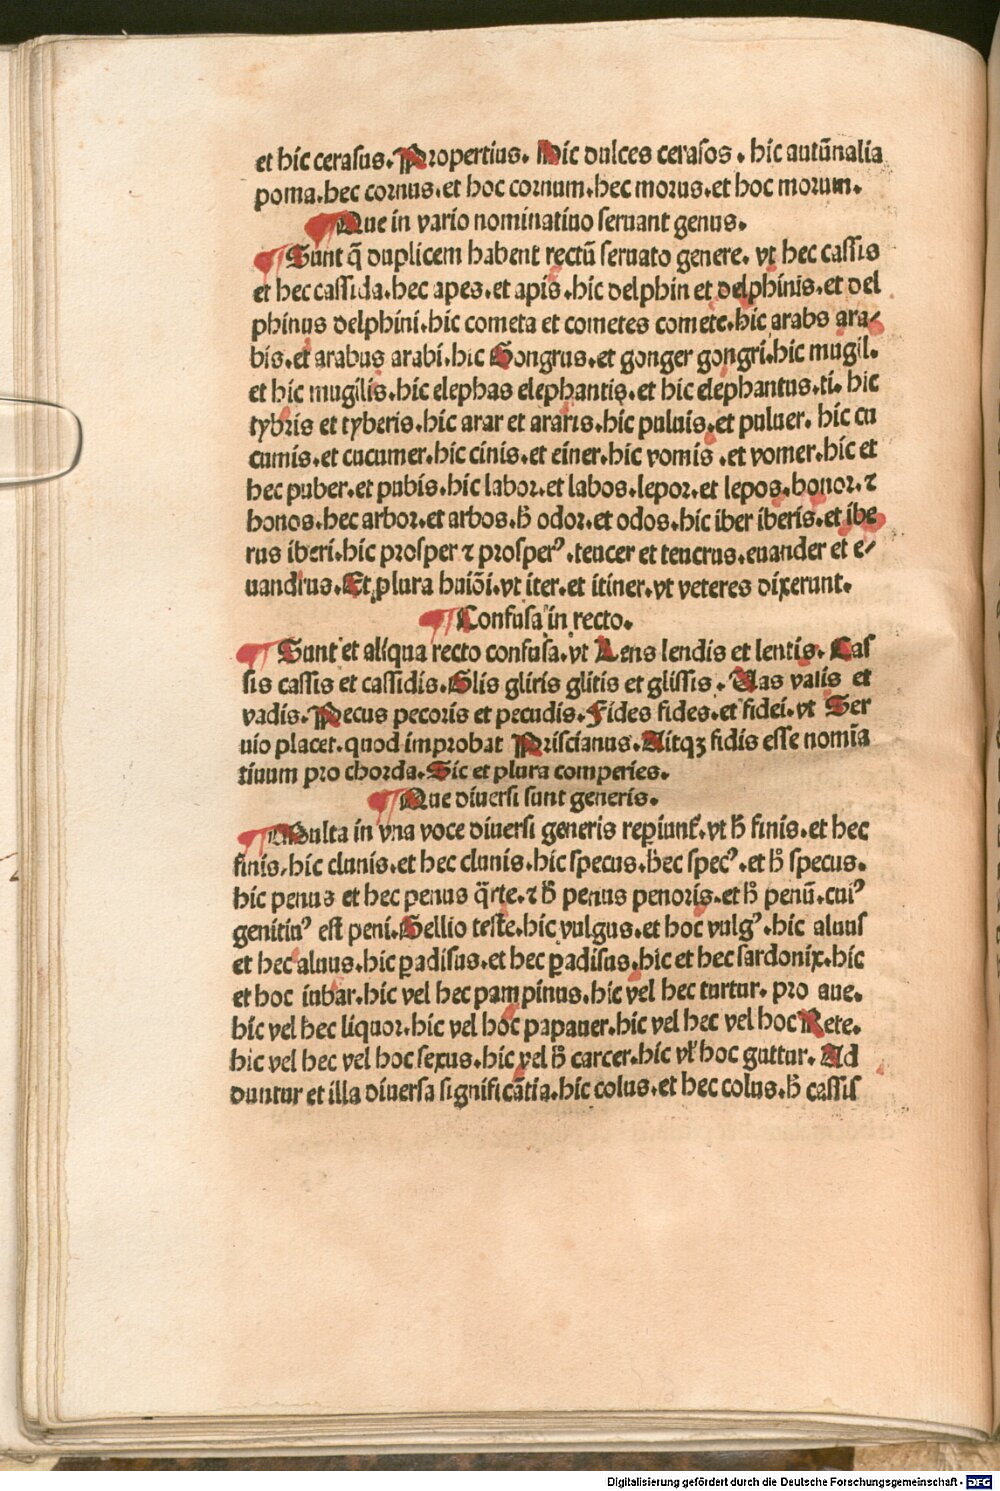 et hic cerasus. Propertius. Hic dulces cerasos. hic autūnalia
poma. hec cornus. et hoc cornum. hec morus. et hoc morum.
Que in vario nominatiuo seruant genus.
Sunt q̄ duplicem habent rectū seruato genere. vt hec cassis
et hec cassida. hec apes. et apis. hic delphin et delphinis. et del
phinus delphini. hic cometa et cometes comete. hic arabs ara⸗
bis. et arabus arabi. hic Gongrus. et gonger gongri. hic mugil.
et hic mugilis. hic elephas elephantis. et hic elephantus. ti. hic
tybris et tyberis. hic arar et araris. hic puluis. et puluer. hic cu
cumis. et cucumer. hic cinis. et einer. hic vomis. et vomer. hic et
hec puber. et pubis. hic labor. et labos. lepor. et lepos. honor. ⁊
honos. hec arbor. et arbos. h̄ odor. et odos. hic iber iberis. et ibe
rus iberi. hic prosper ⁊ prosperꝰ. teucer et teucrus. euander et e⸗
uandrus. Et plura huiōi. vt iter. et itiner. vt veteres dixerunt.
Confusa in recto.
Sunt et aliqua recto confusa. vt Lens lendis et lentis. Cas
sis cassis et cassidis. Glis gliris glitis et glissis. Uas vasis et
vadis. Pecus pecoris et pecudis. Fides fides. et fidei. vt Ser
uio placet. quod improbat Priscianus. Aitqꝫ fidis esse nomīa
tiuum pro chorda. Sic et plura comperies.
Que diuersi sunt generis.
Multa in vna voce diuersi generis reꝑiunt᷑. vt h̄ finis. et hec
finis. hic clunis. et hec clunis. hic specus. hec specꝰ. et h̄ specus.
hic penus et hec penus q̄rte. ⁊ h̄ penus penoris. et h̄ penū. cuiꝰ
genitiuꝰ est peni. Gellio teste. hic vulgus. et hoc vulgꝰ. hic aluus
et hec aluus. hic ꝑadisus. et hec ꝑadisus. hic et hec sardonix. hic
et hoc iubar. hic vel hec pampinus. hic vel hec turtur. pro aue.
hic vel hec liquor. hic vel hoc papauer. hic vel hec vel hoc Rete.
hic vel hec vel hoc sexus. hic vel h̄ carcer. hic vł hoc guttur. Ad
duntur et illa diuersa significātia. hic colus. et hec colus. h̄ cassis
Digitalisierung gefördert durch die Deutsche Forschungsgemeinschaft - DFG